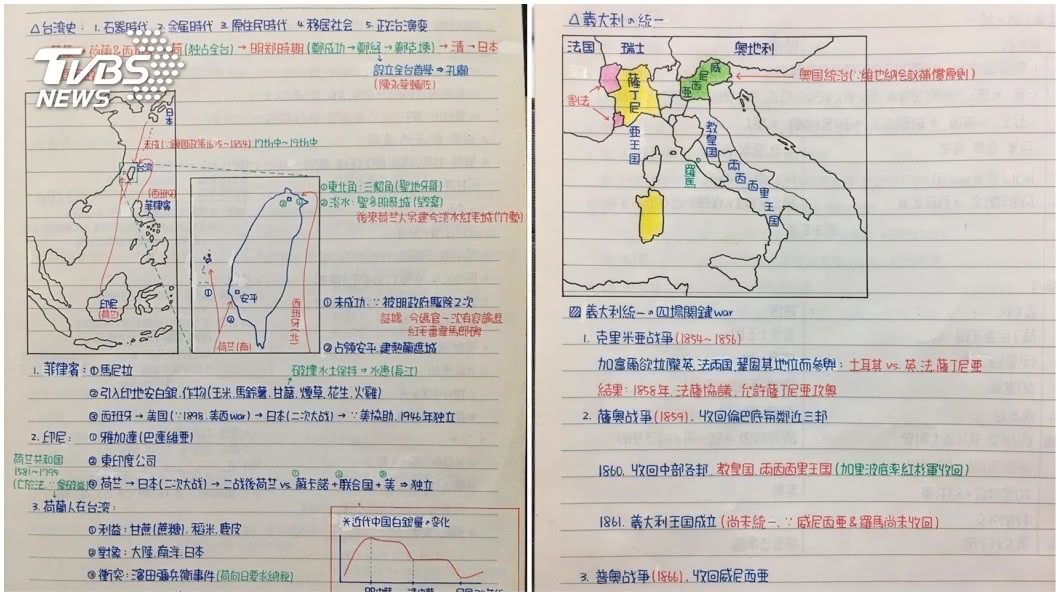 TVBS
NEWS
△台湾史: 1. 石器時代 2. 金屬時代 3. 原住民時代 4. 移居社会 5. 政治演变
(独占全台) → 明鄭時期 (鄭成功→鄭經→鄭克塽) → 清 → 日本
設立全台首學 ⇒ 孔廟
(陳永華輔政)
日本
未成(∵鎖国政策1635~1854) 17th中~19th中
台湾
(西班牙)
菲律賓
印尼
(荷兰)
①東北角: 三貂角(聖地牙哥)
②淡水: 聖多明哥城(毀棄)
後來荷兰人另建今淡水紅毛城
安平
西班牙(北)
荷兰(南)
①未成功, ∵被明政府驅除2次
証據: 今碼宮-沈有容諭退
紅毛番韋麻郎碑
②占領安平, 建熱蘭遮城
1. 菲律賓: ①馬尼拉
破壞水土保持 ⇒ 水患(長江)
②引入印地安白銀, 作物(玉米, 馬鈴薯, 甘藷, 煙草, 花生, 火雞)
③西班牙 → 美国(∵1898, 美西war) → 日本(二次大战) → ∵美協助, 1946年独立
2. 印尼: ①雅加達(巴達維亞)
荷兰共和国
1581~1795
②東印度公司
③荷兰 → 日本(二次大战) → 二战後荷兰 vs. 蘇卡諾+联合国+美 ⇒ 独立
3. 荷蘭人在台湾:
①利益: 甘蔗(蔗糖), 稻米, 鹿皮
②對象: 大陸, 南洋, 日本
③衝突: 濱田彌兵衛事件(荷向日要求納稅)
*近代中国白銀量の变化
△義大利の統一
法国 瑞士 奧地利
薩丁尼亚王国
威尼西亚
奧国統治(∵維也納会議補償原則)
割法
教皇国
羅馬
兩西西里王国
▨ 義大利統一の四場関鍵war
1. 克里米亚战爭(1854~1856)
加富爾欲拉攏英, 法兩国, 鞏固其地位而參與: 土耳其 vs. 英, 法, 薩丁尼亚
結果: 1858年, 法薩協議, 允許薩丁尼亚攻奧
2. 薩奧战爭(1859), 收回倫巴底与鄰近三邦
1860, 收回中部各邦, 教皇国, 兩西西里王国(加里波底率紅杉軍收回)
1861, 義大利王国成立(尚未統一, ∵威尼西亚&羅馬尚未收回)
3. 普奧战爭(1866), 收回威尼西亚